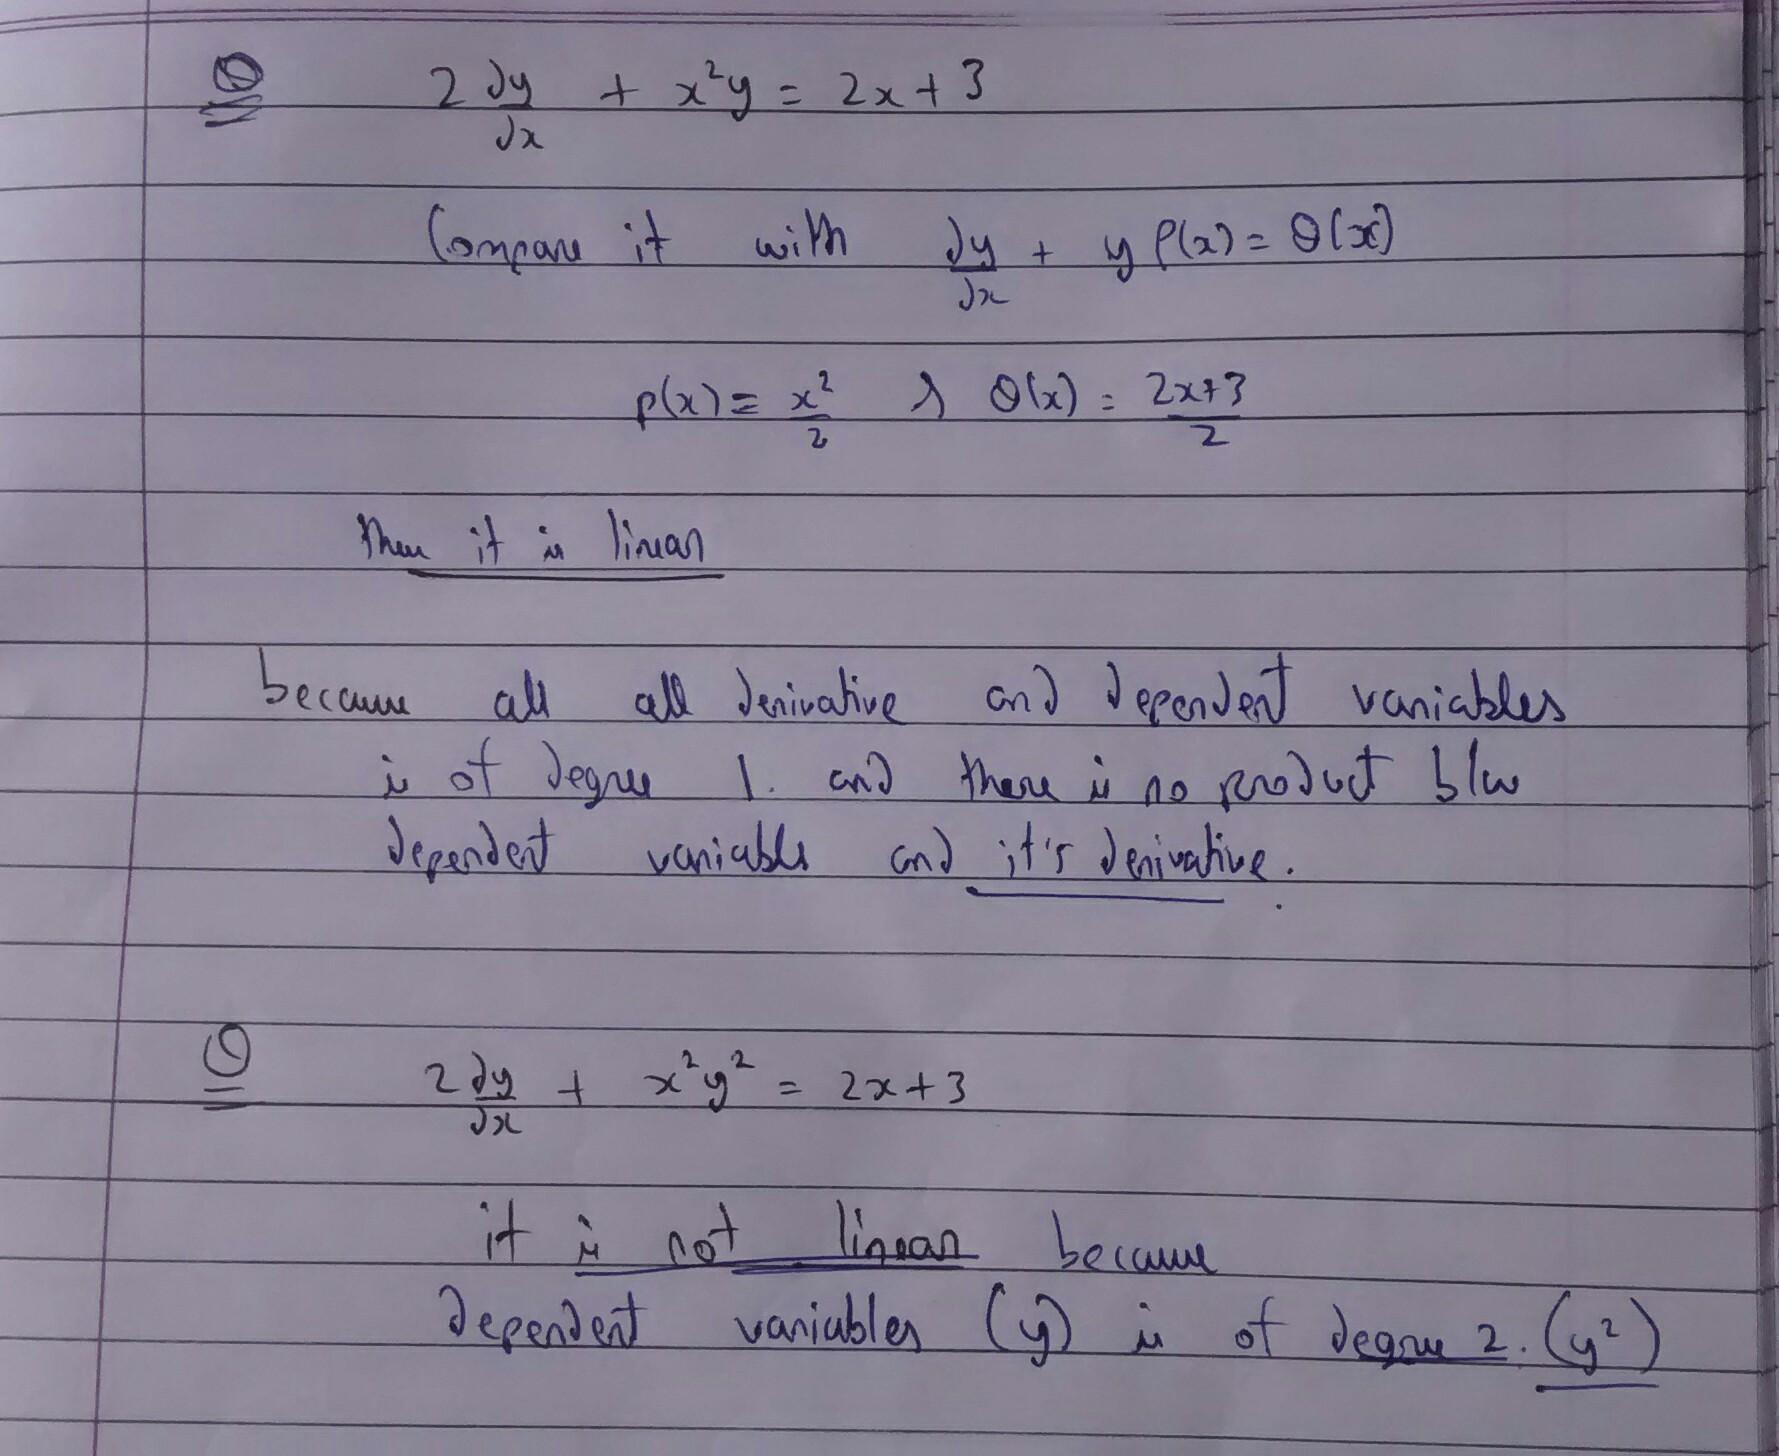 Q 2 dy/dx + x²y = 2x + 3
Compare it with dy/dx + y P(x) = Q(x)
p(x) = x²/2 & Q(x) = 2x+3/2
then it is linear
because all all derivative and dependent variables
is of degree 1. and there is no product b/w
dependent variable and it's derivative.
Q 2 dy/dx + x²y² = 2x + 3
it is not linear because
dependent variables (y) is of degree 2. (y²)